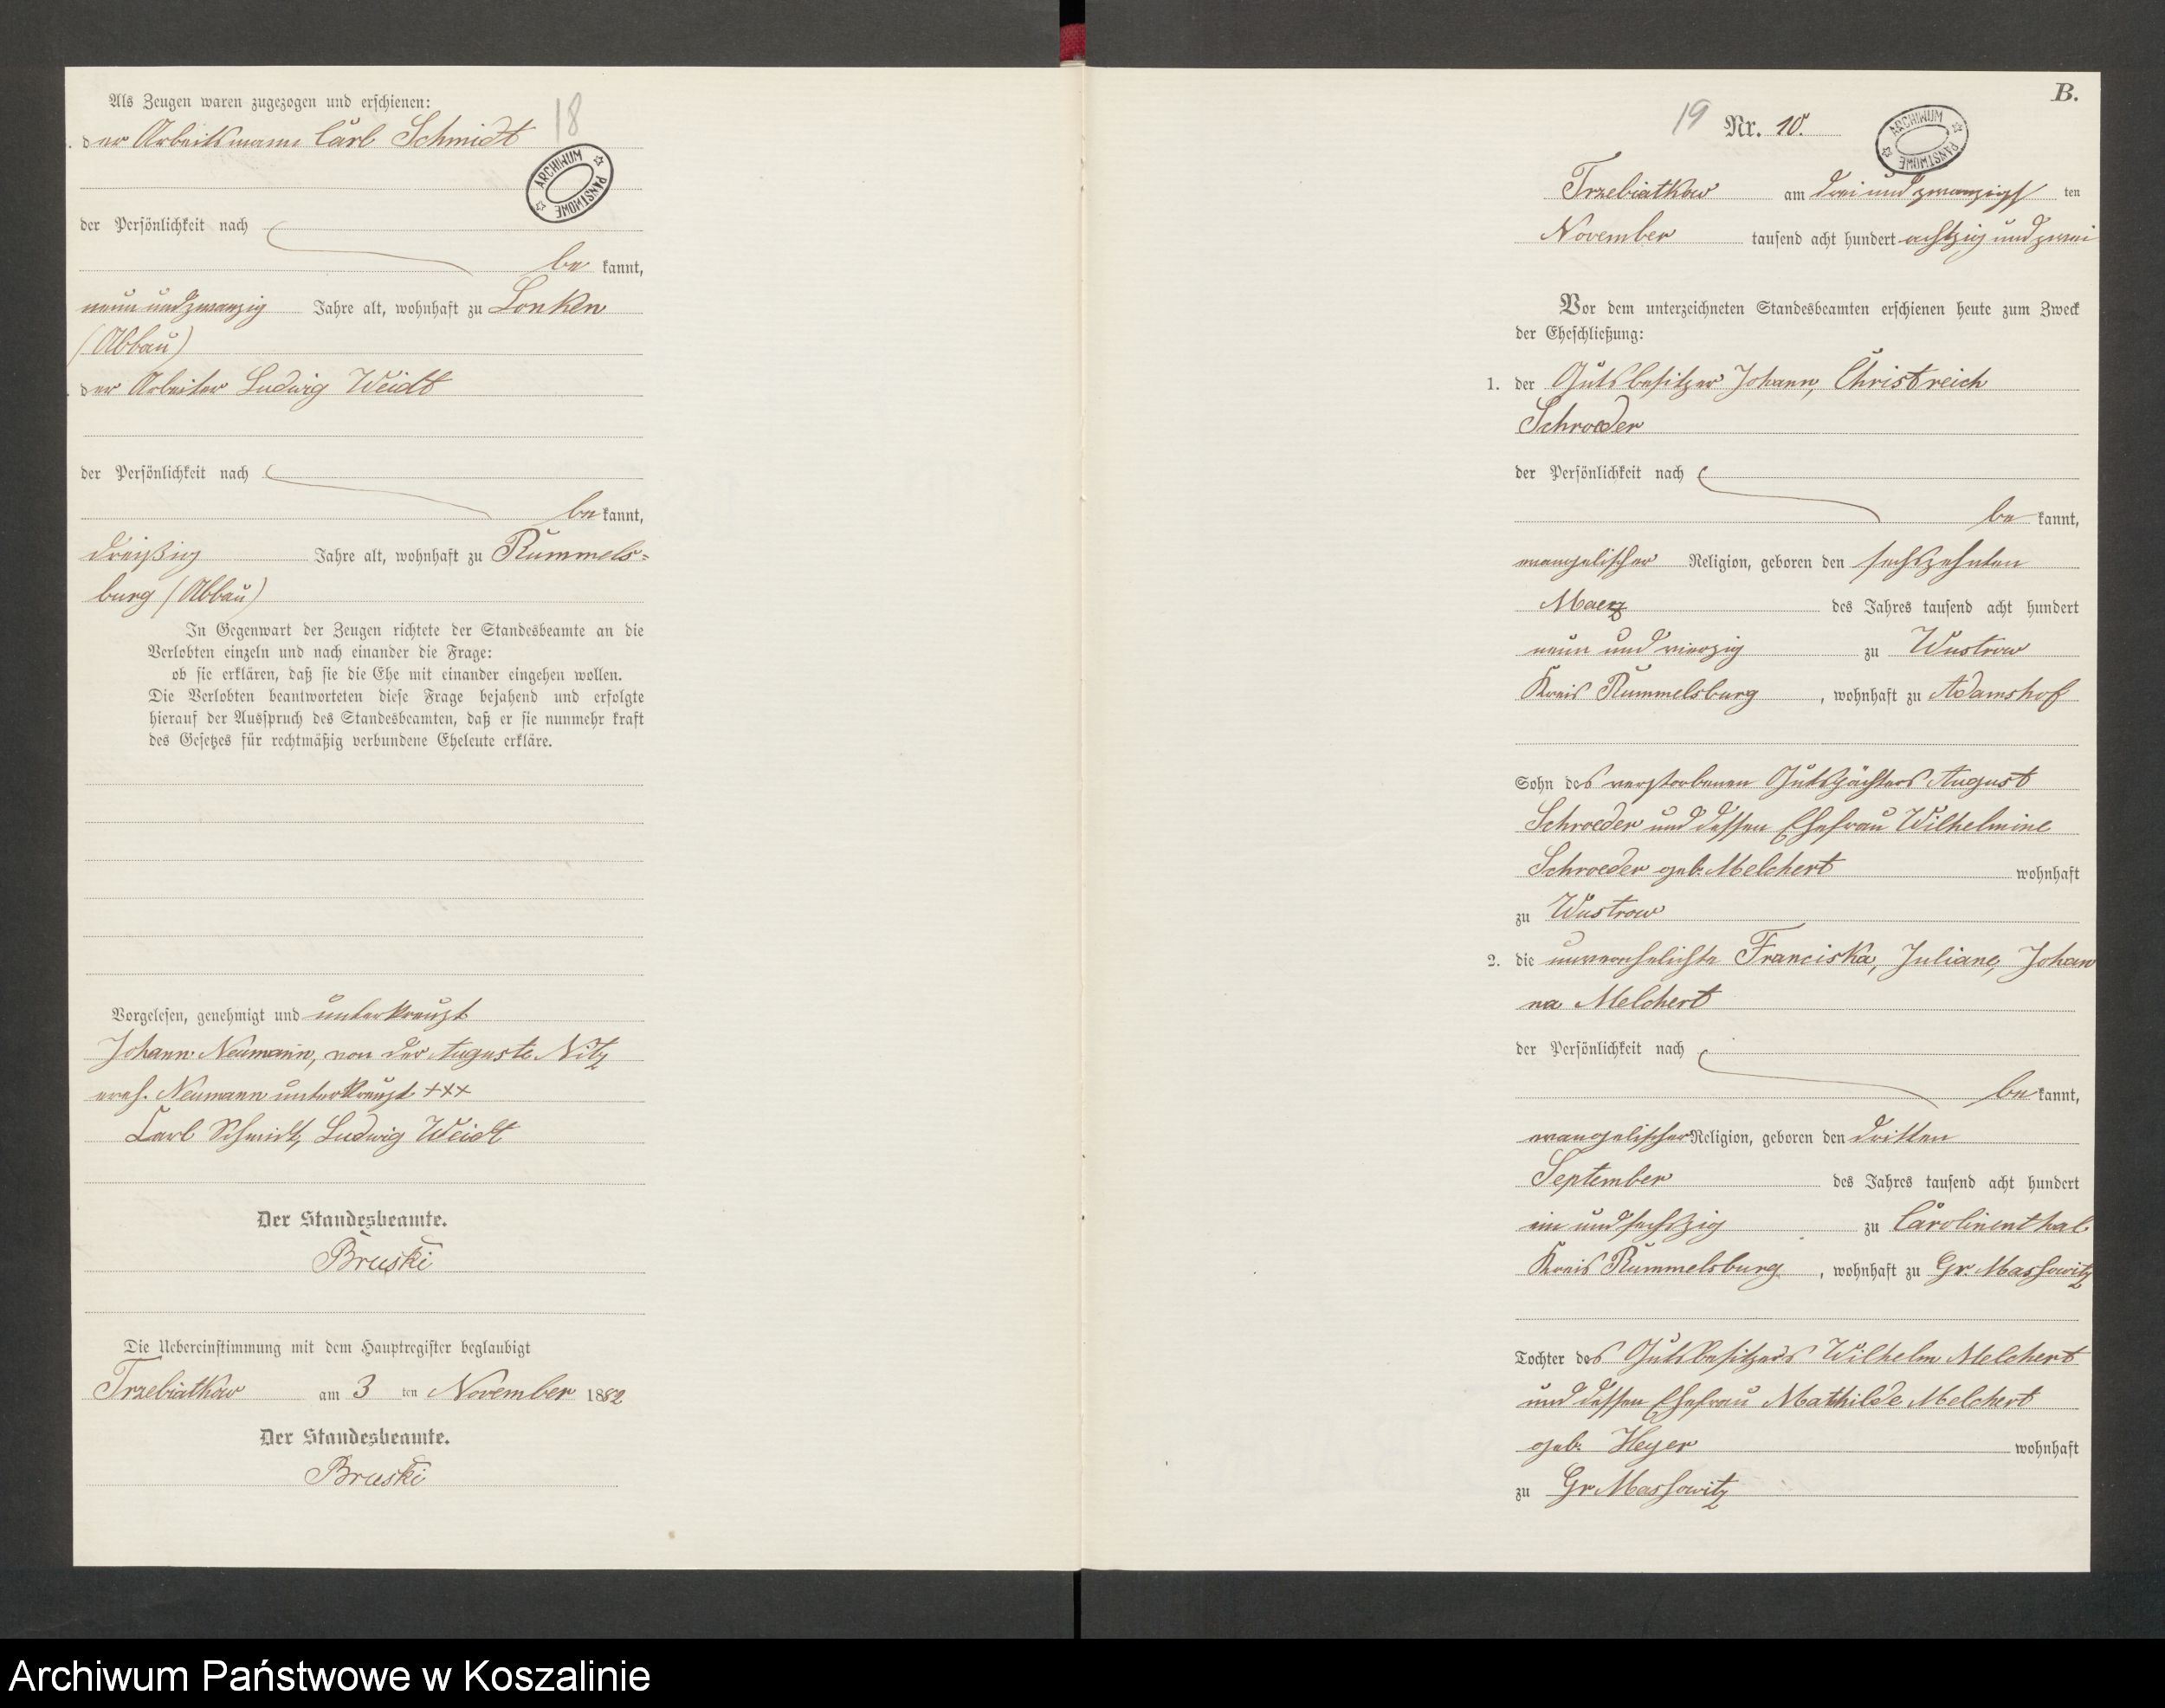 Als Zeugen waren zugezogen und erschienen:
18
der Arbeitsmann Carl Schmidt
ARCHIWUM PAŃSTWOWE
der Persönlichkeit nach
be kannt,
neun und zwanzig Jahre alt, wohnhaft zu Lonken
(Abbau)
der Arbeiter Ludwig Weidt
der Persönlichkeit nach
be kannt,
dreißig Jahre alt, wohnhaft zu Rummels=
burg (Abbau)
In Gegenwart der Zeugen richtete der Standesbeamte an die
Verlobten einzeln und nach einander die Frage:
ob sie erklären, daß sie die Ehe mit einander eingehen wollen.
Die Verlobten beantworteten diese Frage bejahend und erfolgte
hierauf der Ausspruch des Standesbeamten, daß er sie nunmehr kraft
des Gesetzes für rechtmäßig verbundene Eheleute erkläre.
Vorgelesen, genehmigt und unterkreuzt
Johann Neumann, von der Auguste Nitz
vereh. Neumann unterkreuzt +++
Carl Schmidt, Ludwig Weidt
Der Standesbeamte.
Bruski
Die Uebereinstimmung mit dem Hauptregister beglaubigt
Trzebiatkow am 3 ten November 1882
Der Standesbeamte.
Bruski
B.
19 Nr. 10.
ARCHIWUM PAŃSTWOWE
Trzebiatkow am drei und zwanzigst ten
November tausend acht hundert achtzig und zwei
Vor dem unterzeichneten Standesbeamten erschienen heute zum Zweck
der Eheschließung:
1. der Gutsbesitzer Johann, Christreich
Schroeder
der Persönlichkeit nach
be kannt,
evangelischer Religion, geboren den sechszehnten
Maerz des Jahres tausend acht hundert
neun und vierzig zu Wustrow
Kreis Rummelsburg, wohnhaft zu Adamshof
Sohn des verstorbenen Gutspächters August
Schroeder und dessen Ehefrau Wilhelmine
Schroeder geb. Melchert wohnhaft
zu Wustrow
2. die unverehelichte Franciska, Juliane, Johan
na Melchert
der Persönlichkeit nach
be kannt,
evangelischer Religion, geboren den dritten
September des Jahres tausend acht hundert
ein und sechszig zu Carolinenthal
Kreis Rummelsburg, wohnhaft zu Gr. Massowitz
Tochter des Gutsbesitzers Wilhelm Melchert
und dessen Ehefrau Mathilde Melchert
geb. Heyer wohnhaft
zu Gr. Massowitz
Archiwum Państwowe w Koszalinie